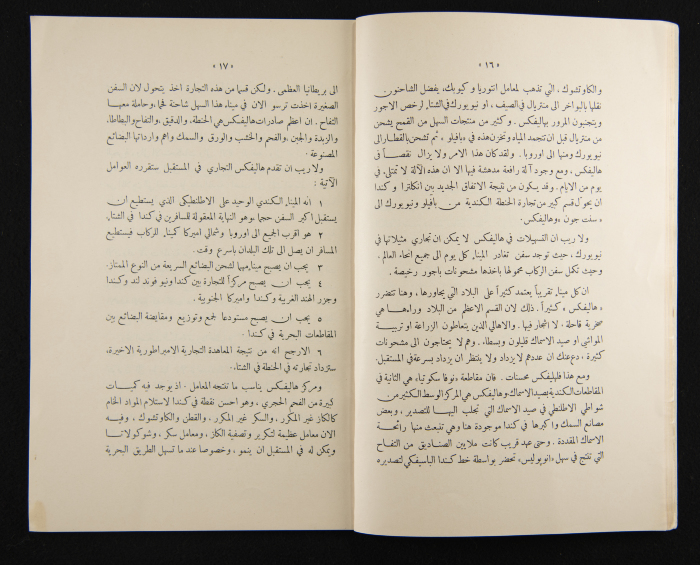 «١٦»
والكاوتشوك، التي تذهب لمعامل انتوريا وكيوبك، يفضل الشاحنون
نقلها بالبواخر الى منتريال في الصيف، او نيويورك في الشتاء لرخص الاجور
ويتجنبون المرور بهاليفكس. وكثير من منتجات السهل من القمح يشحن
من منتريال قبل ان تتجمد المياه وتخزن هذه في «بافيلو» ثم تشحن بالقطار الى
نيويورك ومنها الى اوروبا. ولقد كان هذا الامر ولا يزال نقصاً في
هاليفكس، ومع وجود آلة رافعة مدهشة فيها الا ان هذه الآلة لا تمتلئ في
يوم من الايام. وقد يكون من نتيجة الاتفاق الجديد بين انكلترا وكندا
ان يحول قسم كبير من تجارة الحنطة الكندية من بافيلو ونيويورك الى
«سنت جون» وهاليفكس.
ولا ريب ان التسهيلات في هاليفكس لا يمكن ان تجاري مثيلاتها في
نيويورك، حيث توجد سفن تغادر الميناء كل يوم الى جميع انحاء العالم.
وحيث لكل سفن الركاب حمولتها باخذها مشحونات باجور رخيصة.
ان كل ميناء تقريباً يعتمد كثيراً على البلاد التي يجاورها، وهنا تتضرر
«هاليفكس» كثيراً. ذلك لان القسم الاعظم من البلاد وراءها هي
صخرية قاحلة. لا اشجار فيها. والاهالي الذين يتعاطون الزراعة او تربية
المواشي او صيد الاسماك قليلون وبسطاء. وهم لا يحتاجون الى مشحونات
كثيرة، دع عنك ان عددهم لا يزداد ولا ينتظر ان يزداد بسرعة في المستقبل.
ومع هذا فلهاليفكس محسنات. فان مقاطعة «نوفا سكوتيا» هي الثانية في
المقاطعات الكندية بصيد الاسماك وهاليفكس هي المركز الوسط الكثير من
شواطي الاطلنطي في صيد الاسماك التي تجلب اليها للتصدير، وبعض
مصانع السمك واكبرها في كندا موجودة هنا وهي تنبعث منها رائحة
الاسماك المقددة. وحتى عهد قريب كانت ملايين الصناديق من التفاح
التي تنتج في سهل «انوبوليس» تحضر بواسطة خط كندا الباسيفكي لتصديره
«١٧»
الى بريطانيا العظمى. ولكن قسما من هذه التجارة اخذ يتحول لان السفن
الصغيرة اخذت ترسو الان في ميناء هذا السهل شاحنة فحما، وحاملة معها
التفاح. ان اعظم صادرات هاليفكس هي الحنطة، والدقيق، والتفاح والبطاطا،
والزبدة والجبن، والفحم والخشب والورق. والسمك واهم وارداتها البضائع
المصنوعة.
ولا ريب ان تقدم هاليفكس التجاري في المستقبل ستقرره العوامل
الآتية:
١ انه الميناء الكندي الوحيد على الاطلنطيكي الذي يستطيع ان
يستقبل اكبر السفن حجما، وهو النهاية المعقولة للمسافرين في كندا في الشتاء.
٢ هو اقرب الجميع الى اوروبا وشمالي اميركا كميناء للركاب فيستطيع
المسافر ان يصل الى تلك البلدان باسرع وقت.
٣ يجب ان يصبح ميناء مهما لشحن البضائع السريعة من النوع الممتاز.
٤ يجب ان يصبح مركزاً للتجارة بين كندا ونيو فوند لند وكندا
وجزر الهند الغربية وكندا واميركا الجنوبية.
٥ يجب ان يصبح مستودعا لجمع وتوزيع ومقايضة البضائع بين
المقاطعات البحرية في كندا.
٦ الارجح انه من نتيجة المعاهدة التجارية الامبراطورية الاخيرة،
ستزداد تجارته في الحنطة في الشتاء.
ومركز هاليفكس يناسب ما تنتجه المعامل. اذ يوجد فيه كميات
كبيرة من الفحم الحجري، وهو احسن نقطة في كندا لاستلام المواد الخام
كالكاز غير المكرر، والسكر غير المكرر، والقطن والكاوتشوك، وفيه
الان معامل عظيمة لتكرير وتصفية الكاز، ومعامل سكر، وشوكولاتا
ويمكن له في المستقبل ان ينمو، وخصوصا عند ما تسهل الطريق البحرية